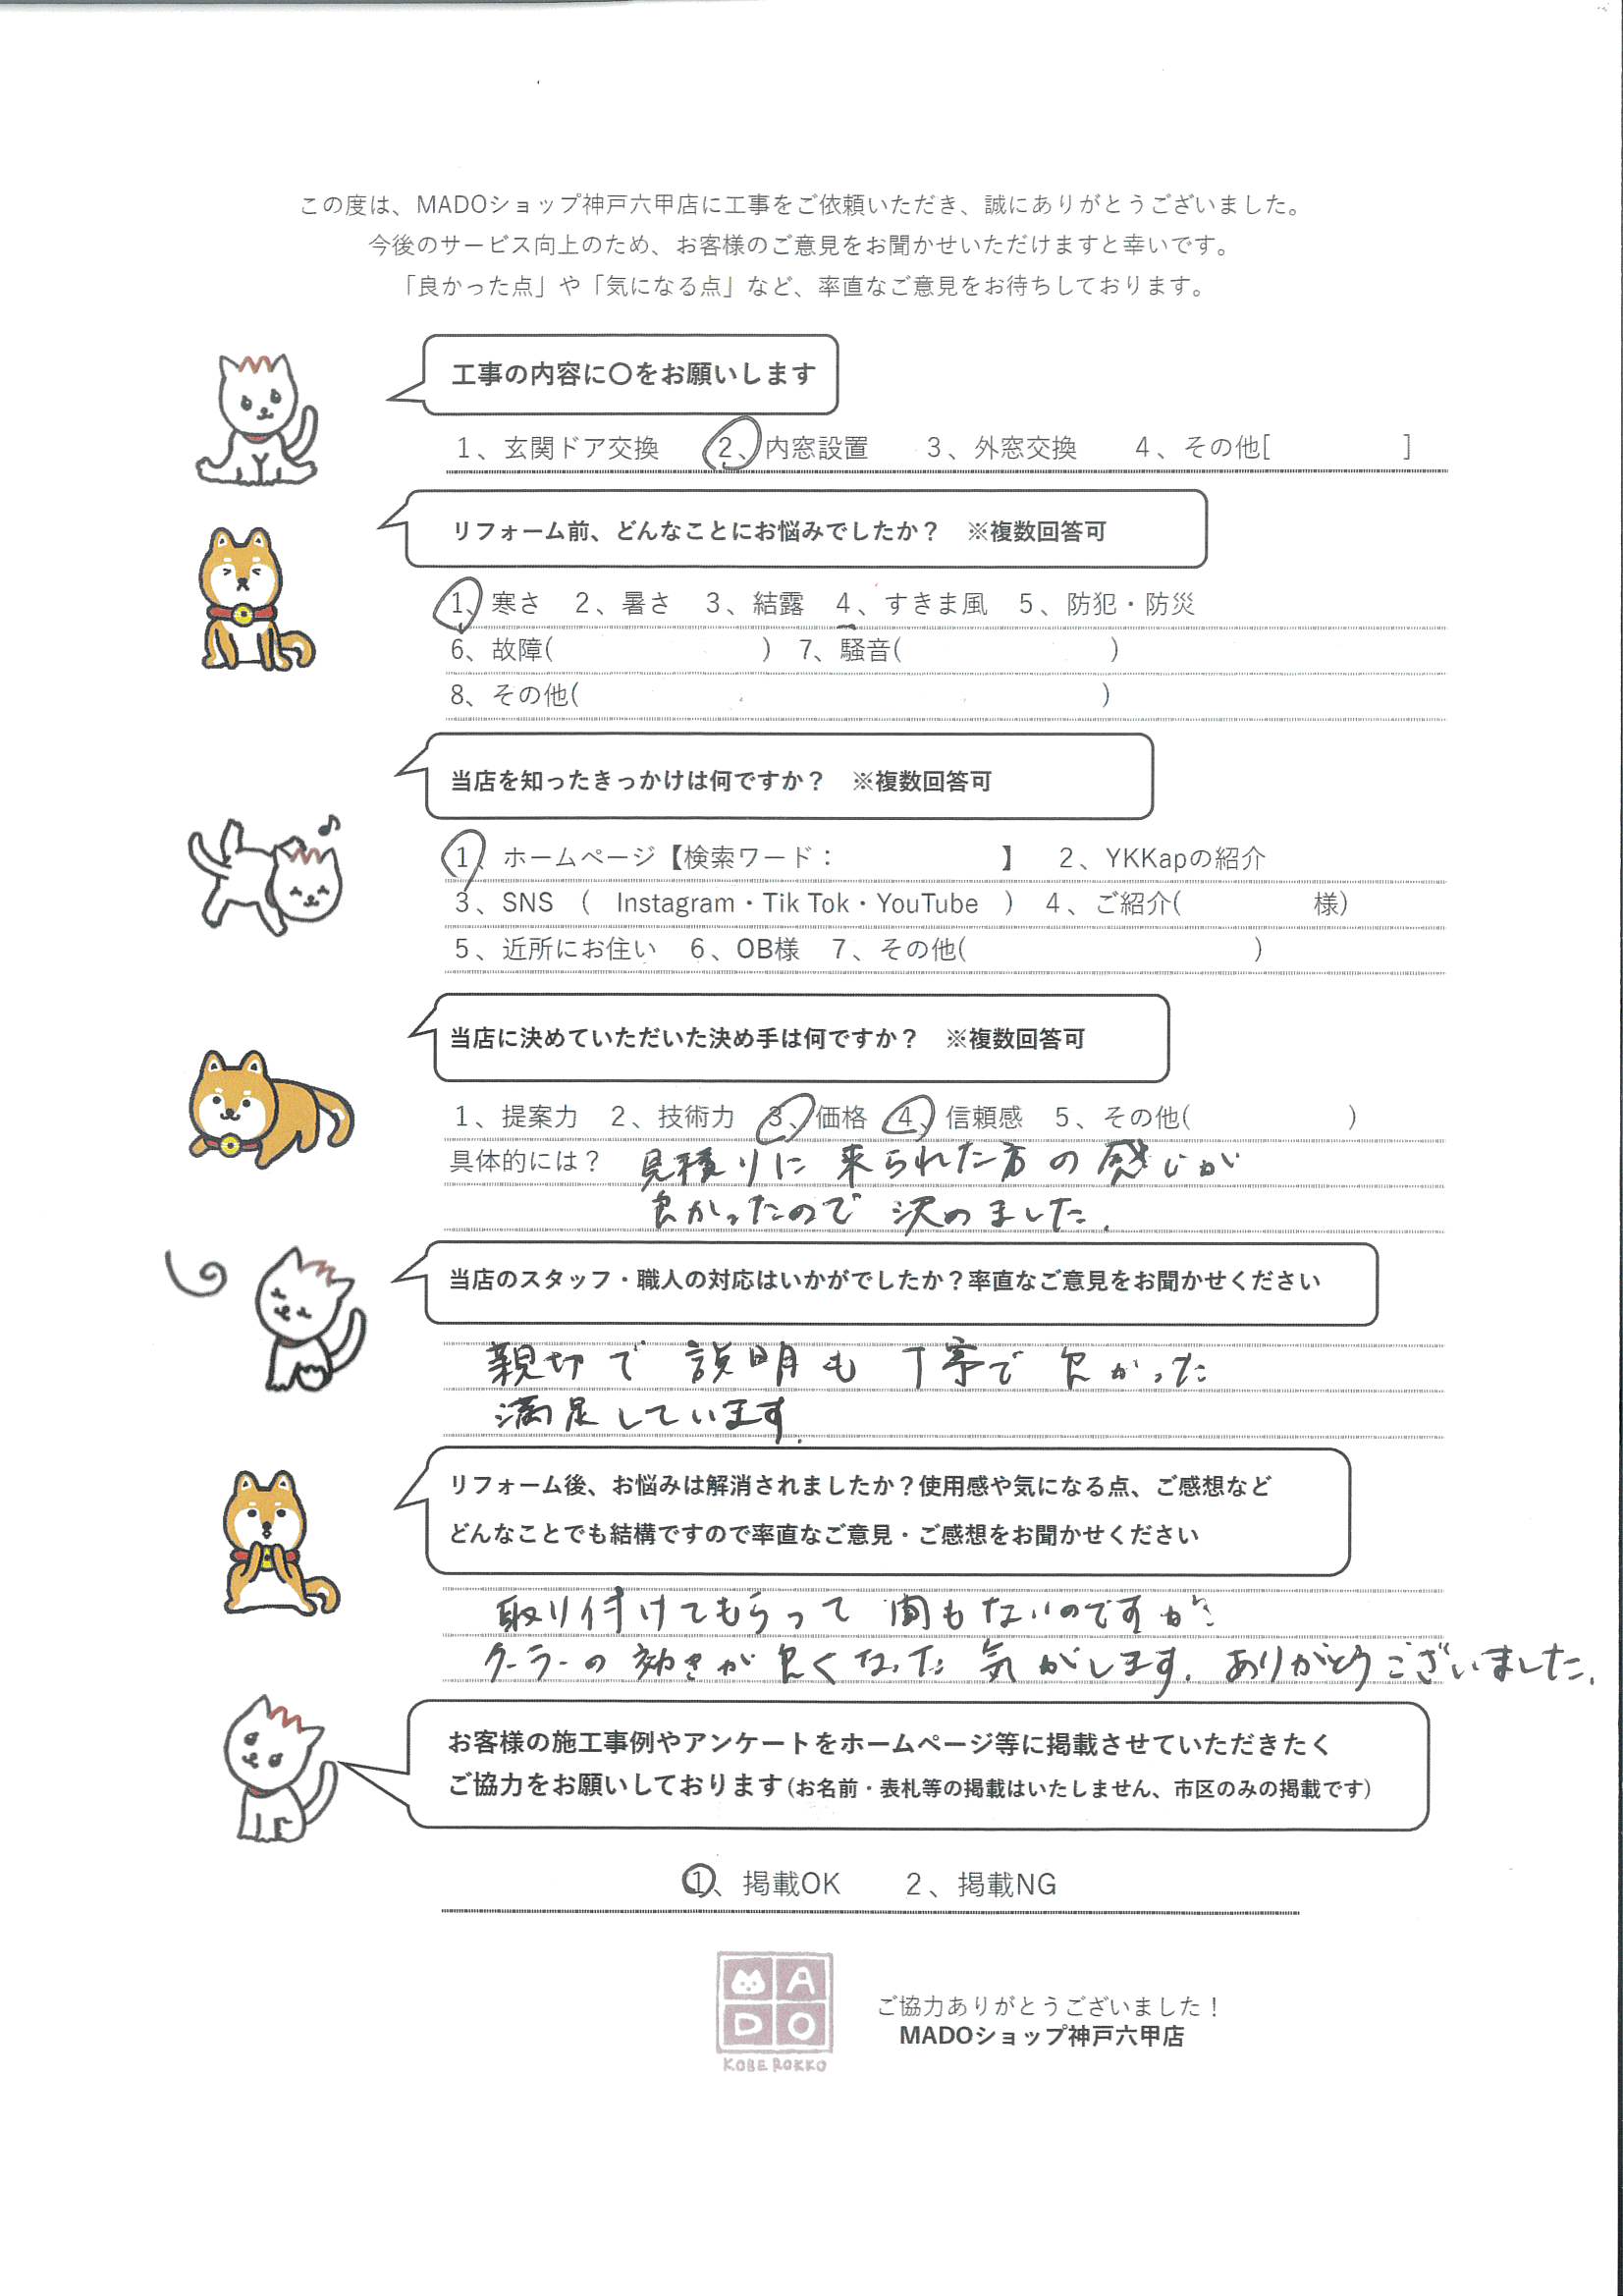 この度は、MADOショップ神戸六甲店に工事をご依頼いただき、誠にありがとうございました。
今後のサービス向上のため、お客様のご意見をお聞かせいただけますと幸いです。
「良かった点」や「気になる点」など、率直なご意見をお待ちしております。
工事の内容に〇をお願いします
1、玄関ドア交換 2、内窓設置 3、外窓交換 4、その他[ ]
リフォーム前、どんなことにお悩みでしたか？ ※複数回答可
1、寒さ 2、暑さ 3、結露 4、すきま風 5、防犯・防災
6、故障( ) 7、騒音( )
8、その他( )
当店を知ったきっかけは何ですか？ ※複数回答可
1、ホームページ【検索ワード： 】 2、YKKapの紹介
3、SNS ( Instagram・Tik Tok・YouTube ) 4、ご紹介( 様)
5、近所にお住い 6、OB様 7、その他( )
当店に決めていただいた決め手は何ですか？ ※複数回答可
1、提案力 2、技術力 3、価格 4、信頼感 5、その他( )
具体的には？ 見積りに来られた方の感じが
良かったので決めました.
当店のスタッフ・職人の対応はいかがでしたか？率直なご意見をお聞かせください
親切で説明も丁寧で良かった
満足しています.
リフォーム後、お悩みは解消されましたか？使用感や気になる点、ご感想など
どんなことでも結構ですので率直なご意見・ご感想をお聞かせください
取り付けてもらって間もないのですが
クーラーの効きが良くなった気がします. ありがとうございました.
お客様の施工事例やアンケートをホームページ等に掲載させていただきたく
ご協力をお願いしております(お名前・表札等の掲載はいたしません、市区のみの掲載です)
1、掲載OK 2、掲載NG
MADO
KOBE ROKKO
ご協力ありがとうございました！
MADOショップ神戸六甲店